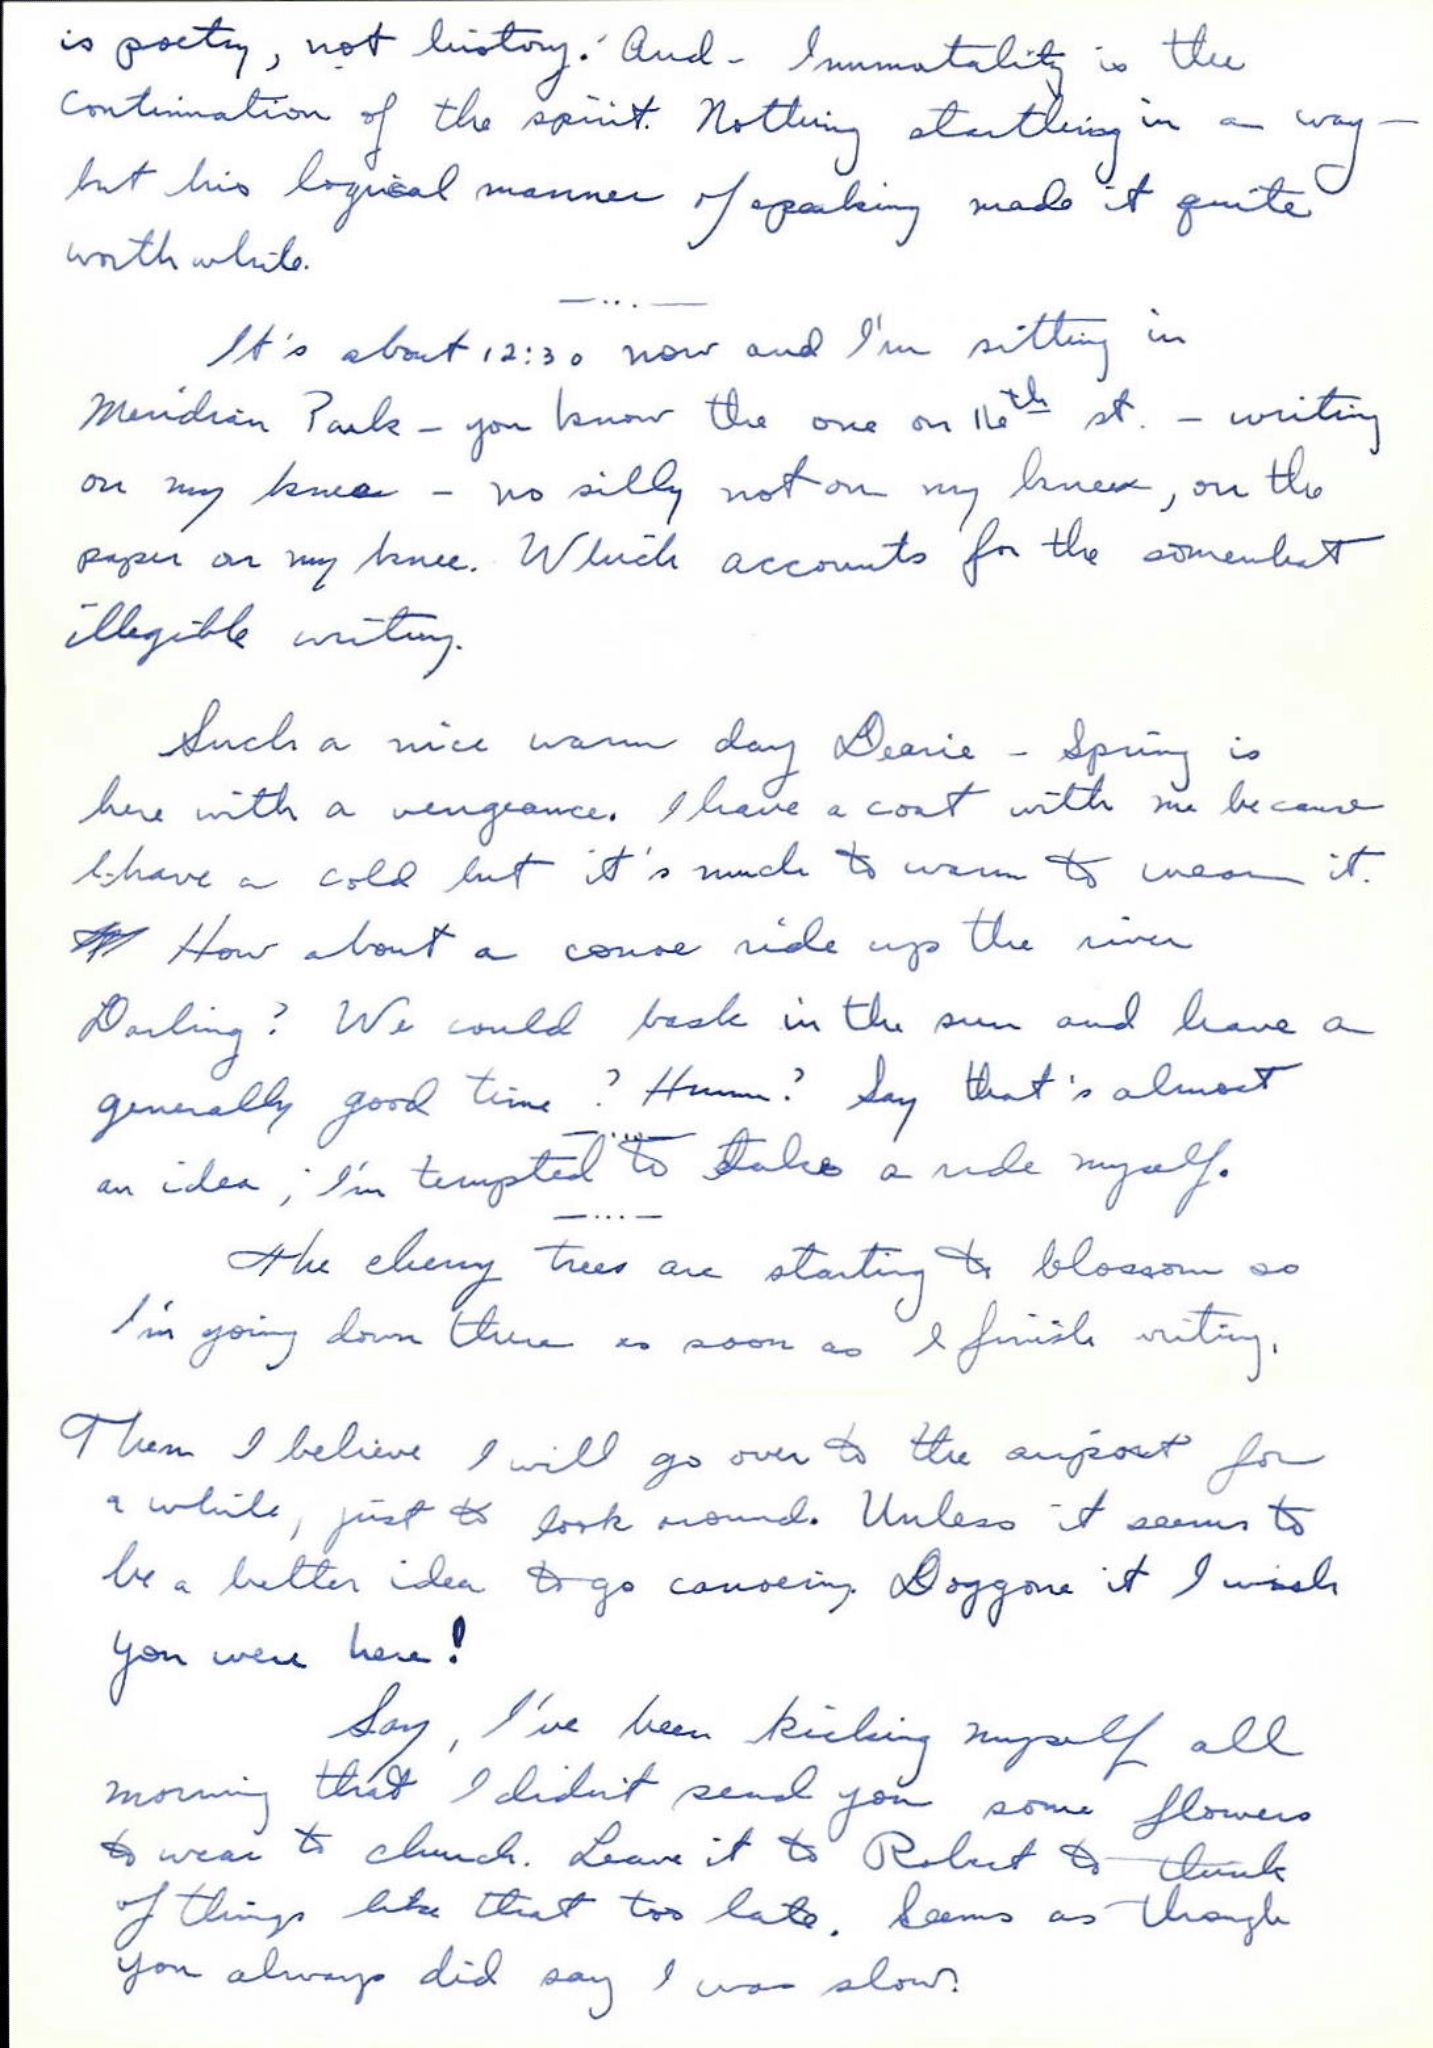 is poetry, not history.' And - Immutality is the
continuation of the spirit. Nothing startling in a way -
but his logical manner of speaking made it quite
worth while.
—...—
It's about 12:30 now and I'm sitting in
Meridian Park - you know the one on 16th st. - writing
on my knee - no silly not on my knee, on the
paper on my knee. Which accounts for the somewhat
illegible writing.
Such a nice warm day Dearie - Spring is
here with a vengeance. I have a coat with me because
I have a cold but it's much to warm to wear it.
How about a canoe ride up the river
Darling? We could bask in the sun and have a
generally good time? Hmmm? Say that's almost
—...—
an idea; I'm tempted to take a ride myself.
—...—
The cherry trees are starting to blossom so
I'm going down there as soon as I finish writing.
Then I believe I will go over to the airport for
a while, just to look around. Unless it seems to
be a better idea to go canoeing. Doggone it I wish
you were here!
Say, I've been kicking myself all
morning that I didn't send you some flowers
to wear to church. Leave it to Robert to think
of things like that too late. Seems as though
you always did say I was slow.